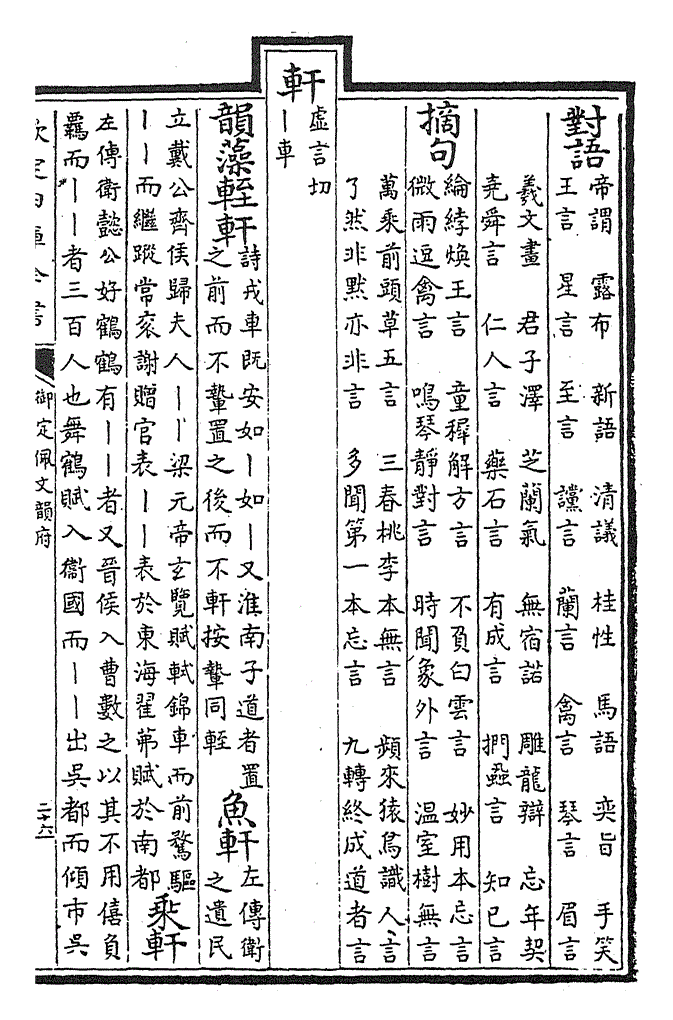 對語
帝謂　露布　新語　清議　桂性　馬語　奕旨　手笑
王言　星言　至言　讜言　蘭言　禽言　琴言　眉言
羲文畫　君子澤　芝蘭氣　無宿諾　雕龍辯　忘年契
堯舜言　仁人言　藥石言　有成言　捫蝨言　知已言
摘句
綸綍煥王言　童穉解方言　不負白雲言　妙用本忘言
微雨逗禽言　鳴琴靜對言　時聞象外言　溫室樹無言
萬乘前頭草五言　三春桃李本無言　頻來猿鳥識人言
了然非默亦非言　多聞第一本忘言　九轉終成道者言
軒
虛言切
丨車
韻藻輊軒
詩戎車既安如丨如丨又淮南子道者置
之前而不䡖置之後而不軒按䡖同輊
魚軒
左傳衛
之遺民
立戴公齊侯歸夫人丨丨梁元帝玄覽賦軾錦車而前騖驅
丨丨而繼蹤常袞謝贈官表丨丨表於東海翟茀賦於南都
乘軒
左傳衛懿公好鶴鶴有丨丨者又晉侯入曹數之以其不用僖負
羈而丨丨者三百人也舞鶴賦入衞國而丨丨出吳都而傾市吳
欽定四庫全書
御定佩文韻府
二十六